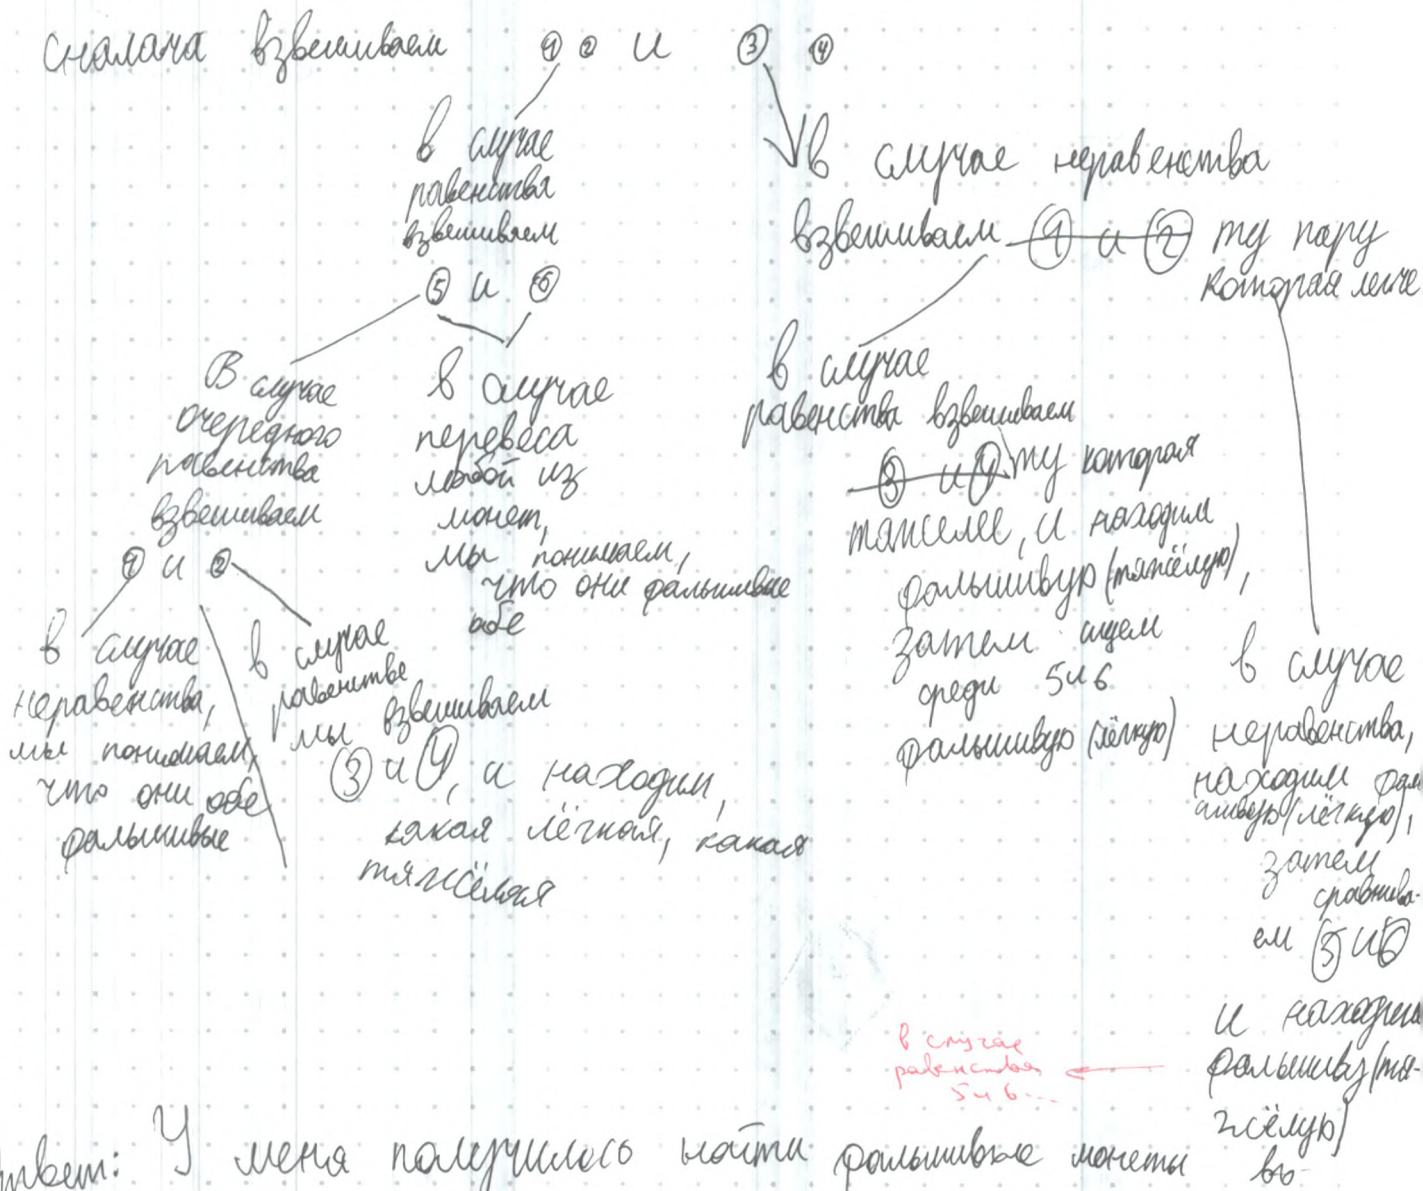 сналача взвешиваем ① ② и ③ ④
в случае
равенства
взвешиваем
⑤ и ⑥
В случае
очередного
равенства
взвешиваем
① и ②
в случае
неравенства,
мы понимаем,
что они обе
фальшивые
в случае
равенстве
мы взвешиваем
③ и ④, и находим,
какая лёгкая, какая
тяжёлая
в случае
перевеса
любой из
монет,
мы понимаем,
что они фальшивые
обе
в случае неравенства
взвешиваем ① и ② ту пару
которая легче
в случае
равенства взвешиваем
③ и ④ ту которая
тяжелее, и находим
фальшивую (тяжёлую),
затем ищем
среди 5 и 6
фальшивую (лёгкую)
в случае
неравенства,
находим фал
шивую (лёгкую),
затем
сравнива-
ем ⑤ и ⑥
и находим
фальшиву (тя-
жёлую)
в случае
равенства
5 и 6...
твет: У меня получилось найти фальшивые монеты во-